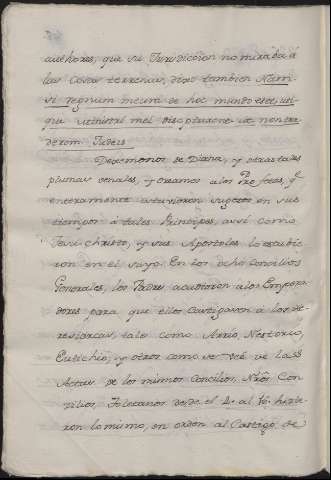 authores, que su Jurisdiccion no miraba á
las cosas terrenas, dixo tambien Nam
si regnum meum de hoc mundo esset, uti-
que ministri mei discipuli ut non tra-
derem Judeis
Dexemonos de Diana, y otras tales
plumas venales, y oygamos a los Profetas, q.e
enteramente estuvieron sugetos en sus
tiempos á tales Principes, assi como
Jesu christo, y sus Apostoles lo estubie-
ron en el suyo. En los ocho Concilios
Generales, los Padres acudieron a los Empera-
dores para que ellos Castigasen á los He-
resiarcas, tales como Arrio, Nestorio,
Eutichio, y otros como se vée de las
Actas de los mismos Concilios, Nros Con-
zilios, Toletanos desde el 4. al 16. hizie-
ron lo mismo, en orden al Castigo de